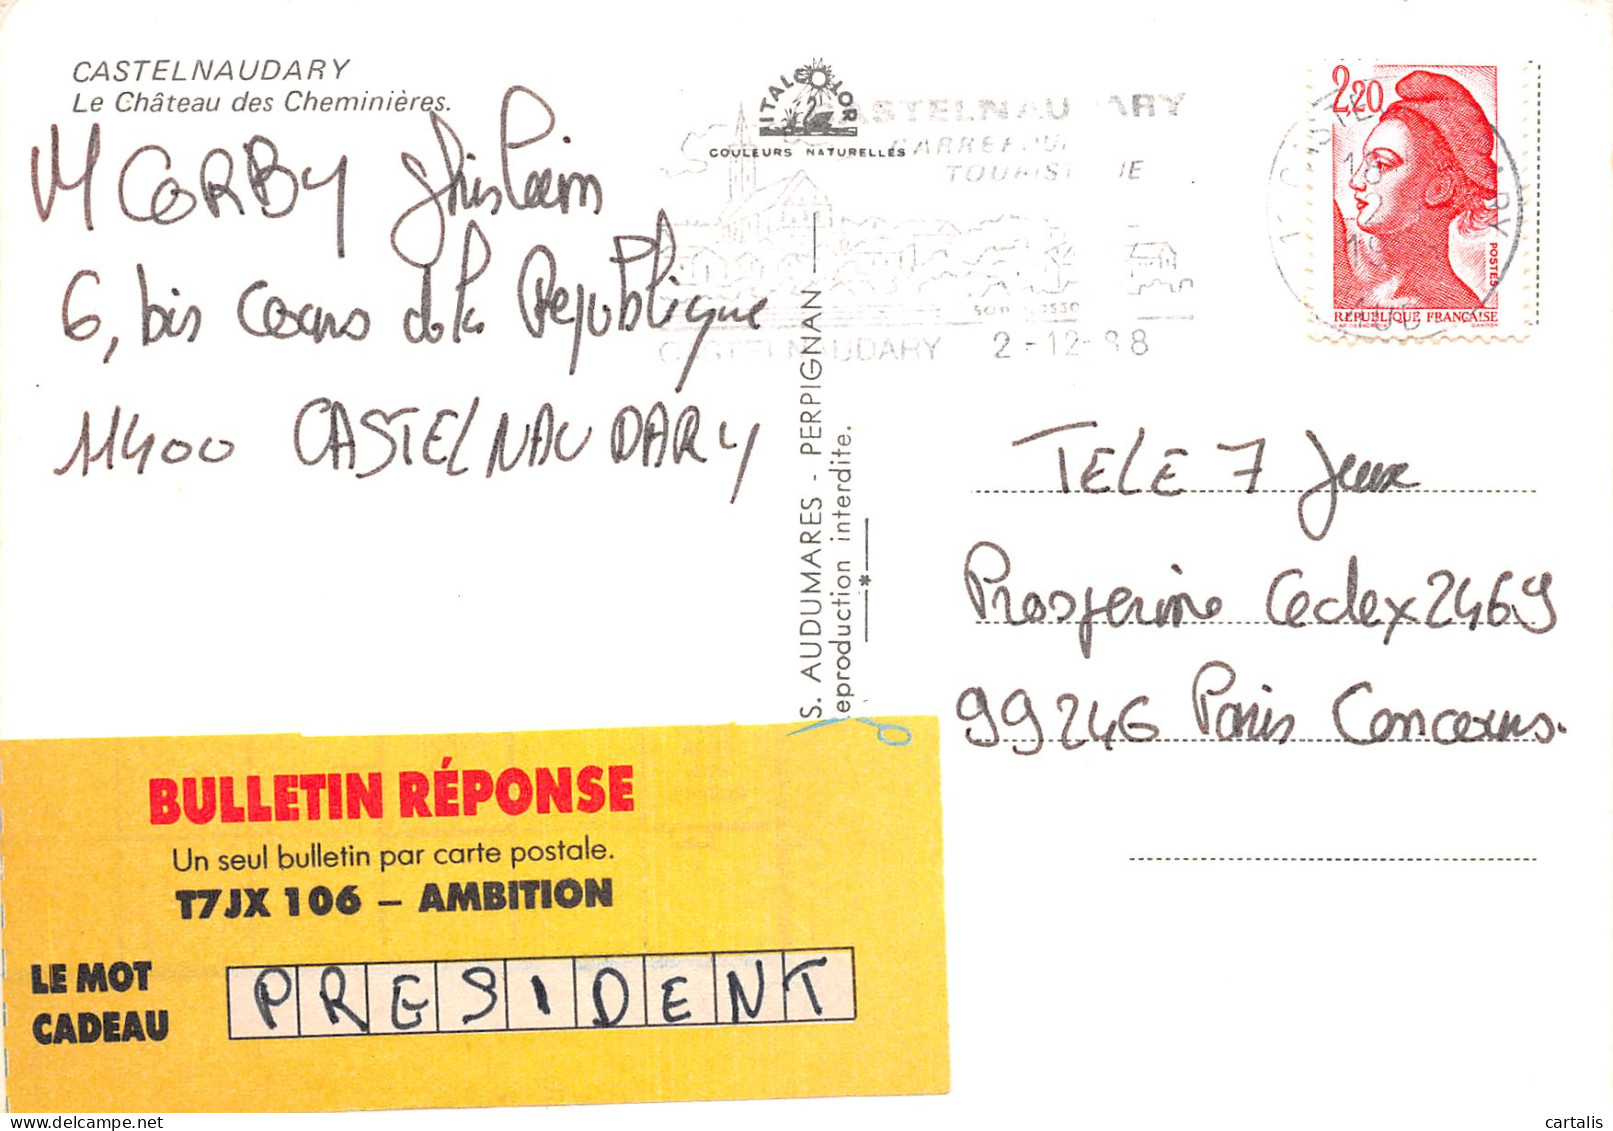 CASTELNAUDARY
Le Château des Cheminières.
M CORBY Ghislain
6, bis cours de la République
11400 CASTELNAUDARY
ITALCOLOR
COULEURS NATURELLES
CASTELNAUDARY
CARREFOUR
TOURISTIQUE
CASTELNAUDARY 2-12-88
S. AUDUMARES - PERPIGNAN
Reproduction interdite.
2,20
POSTES
REPUBLIQUE FRANÇAISE
TELE 7 Jeux
Prosperine Cedex 2469
99246 Paris Concours.
BULLETIN RÉPONSE
Un seul bulletin par carte postale.
T7JX 106 – AMBITION
LE MOT
CADEAU
PRESIDENT
delcampe.net
cartalis